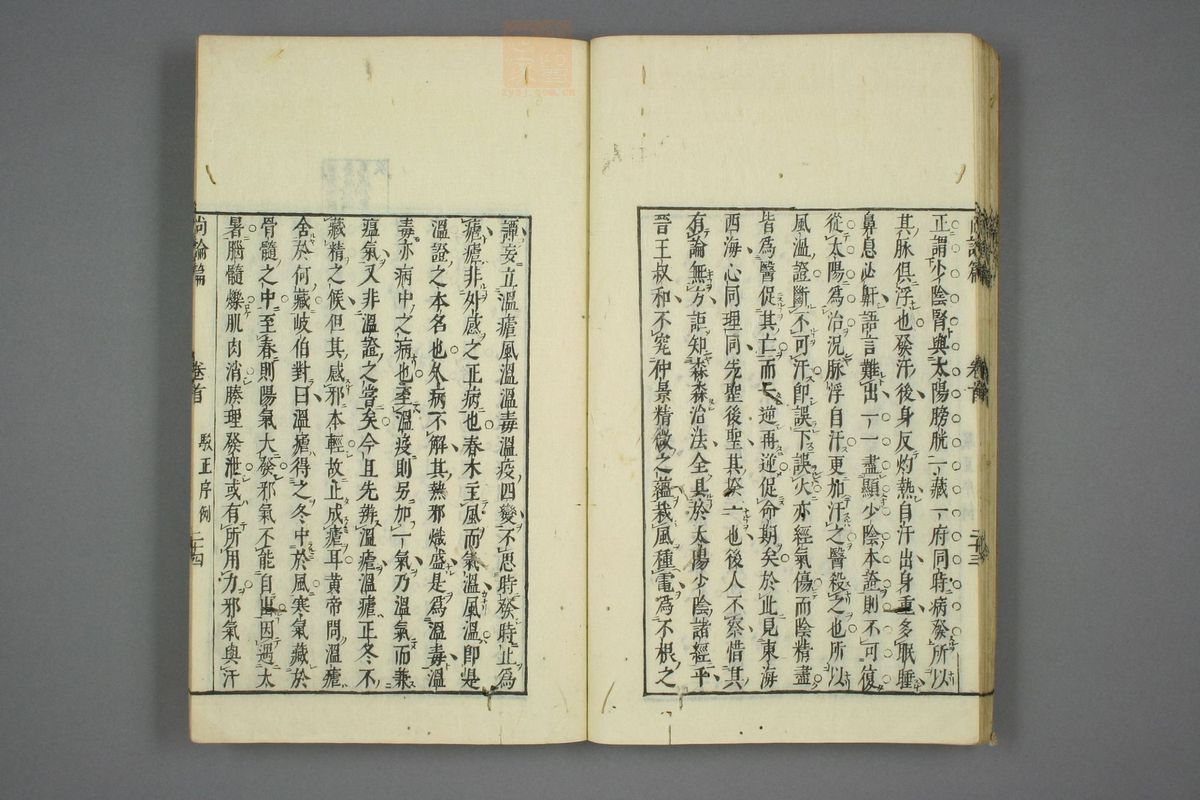 正謂少陰腎與太陽膀胱一藏一府同時病發所以
其脉俱浮也發汗後身反灼熱自汗出身重多眠睡
鼻息必鼾語言難出一一盡顯少陰本證則不可復
從太陽為治況脉浮自汗更加汗之醫殺之也所以
風溫證斷不可汗即誤下誤火亦經氣傷而陰精盡
皆為醫促其亡而一逆再逆促命期矣於此見東海
西海心同理同先聖後聖其揆一也後人不察惜其
有論無方詎知森森治法全具於太陽少陰諸經乎
晉王叔和不究仲景精微之蘊栽風種電為不根之
尚論篇
卷首
二十三
譚妄立溫瘧風溫溫毒溫疫四變不思時發時止為
瘧瘧非外感之正病也春木主風而氣溫風溫即是
溫證之本名也久病不解其熱邪熾盛是為溫毒溫
毒亦病中之病也至溫疫則另加一氣乃溫氣而兼
瘟氣又非溫證之嘗矣今且先辨溫瘧溫瘧正冬不
藏精之候但其感邪本輕故止成瘧耳黃帝問溫瘧
舍於何藏岐伯對曰溫瘧得之冬中於風寒氣藏於
骨髓之中至春則陽氣大發邪氣不能自出因遇太
暑腦髓爍肌肉消腠理發泄或有所用力邪氣與汗
尚論篇
卷首
駁正序例
二十四
zysj.com.cn